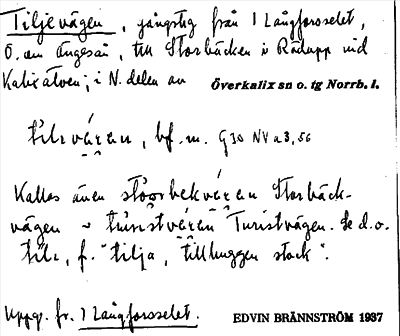 Tiljevägen, gångstig från 1 Långforsselet,
ö. om Ängesån, till Storbäcken i Rödupp vid
Kalixälven; i N. delen av Överkalix sn o. tg Norrb. l.
bf. m. G30 NV a 3, 56
Kallas även Storbäck-
vägen ~ Turistvägen. Se d.o.
f. "tilja, tillhuggen stock".
Uppg. fr. 1 Långforsselet. EDVIN BRÄNNSTRÖM 1937